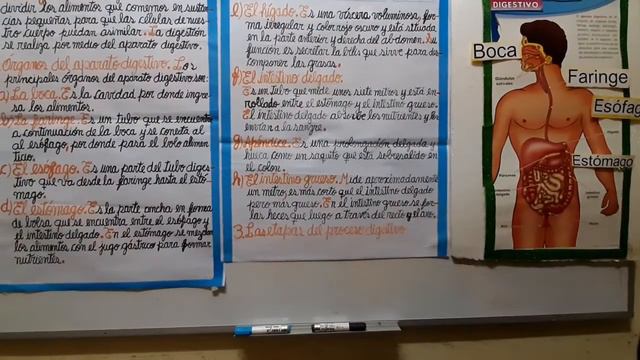 dividir los alimentos que comemos en sustan
cias pequeñas para que las células de nues
tro cuerpo puedan asimilar. La digestión
se realiza por medio del aparato digestivo.
Organos del aparato digestivo. Los
principales órganos del aparato digestivo son:
a) La boca. Es la cavidad por donde ingre-
sa los alimentos.
b) La faringe. Es un tubo que se encuentra
a continuación de la boca y se conecta al
al esófago, por donde pasa el bolo alimen
ticio.
c) El esófago. Es una parte del tubo diges-
tivo que va desde la faringe hasta el estó-
mago.
d) El estómago. Es la parte ancha en forma
de bolsa que se encuentra entre el esófago y
el intestino delgado. En el estómago se mezclan
los alimentos con el jugo gástrico para formar
nutrientes.
e) El hígado. Es una víscera voluminosa, for
ma irregular y color rojo oscuro y está situada
en la parte anterior y derecha del abdomen. Su
función es secretar la bilis que sirve para des-
componer las grasas.
f) El intestino delgado.
Es un tubo que mide unos siete metros y está en-
rollado entre el estómago y el intestino grueso.
El intestino delgado absorbe los nutrientes y los
envían a la sangre.
g) Apéndice. Es una prolongación delgada y
hueca como un saquito que está sobresalido en
el colon.
h) El intestino grueso. Mide aproximadamente
un metro, es más corto que el intestino delgado
pero más grueso. En el intestino grueso se for-
las heces que luego a través del recto y el ano.
3. Las etapas del proceso digestivo
DIGESTIVO
Boca
Glándulas
salivales
Faringe
Esófag
Estómago